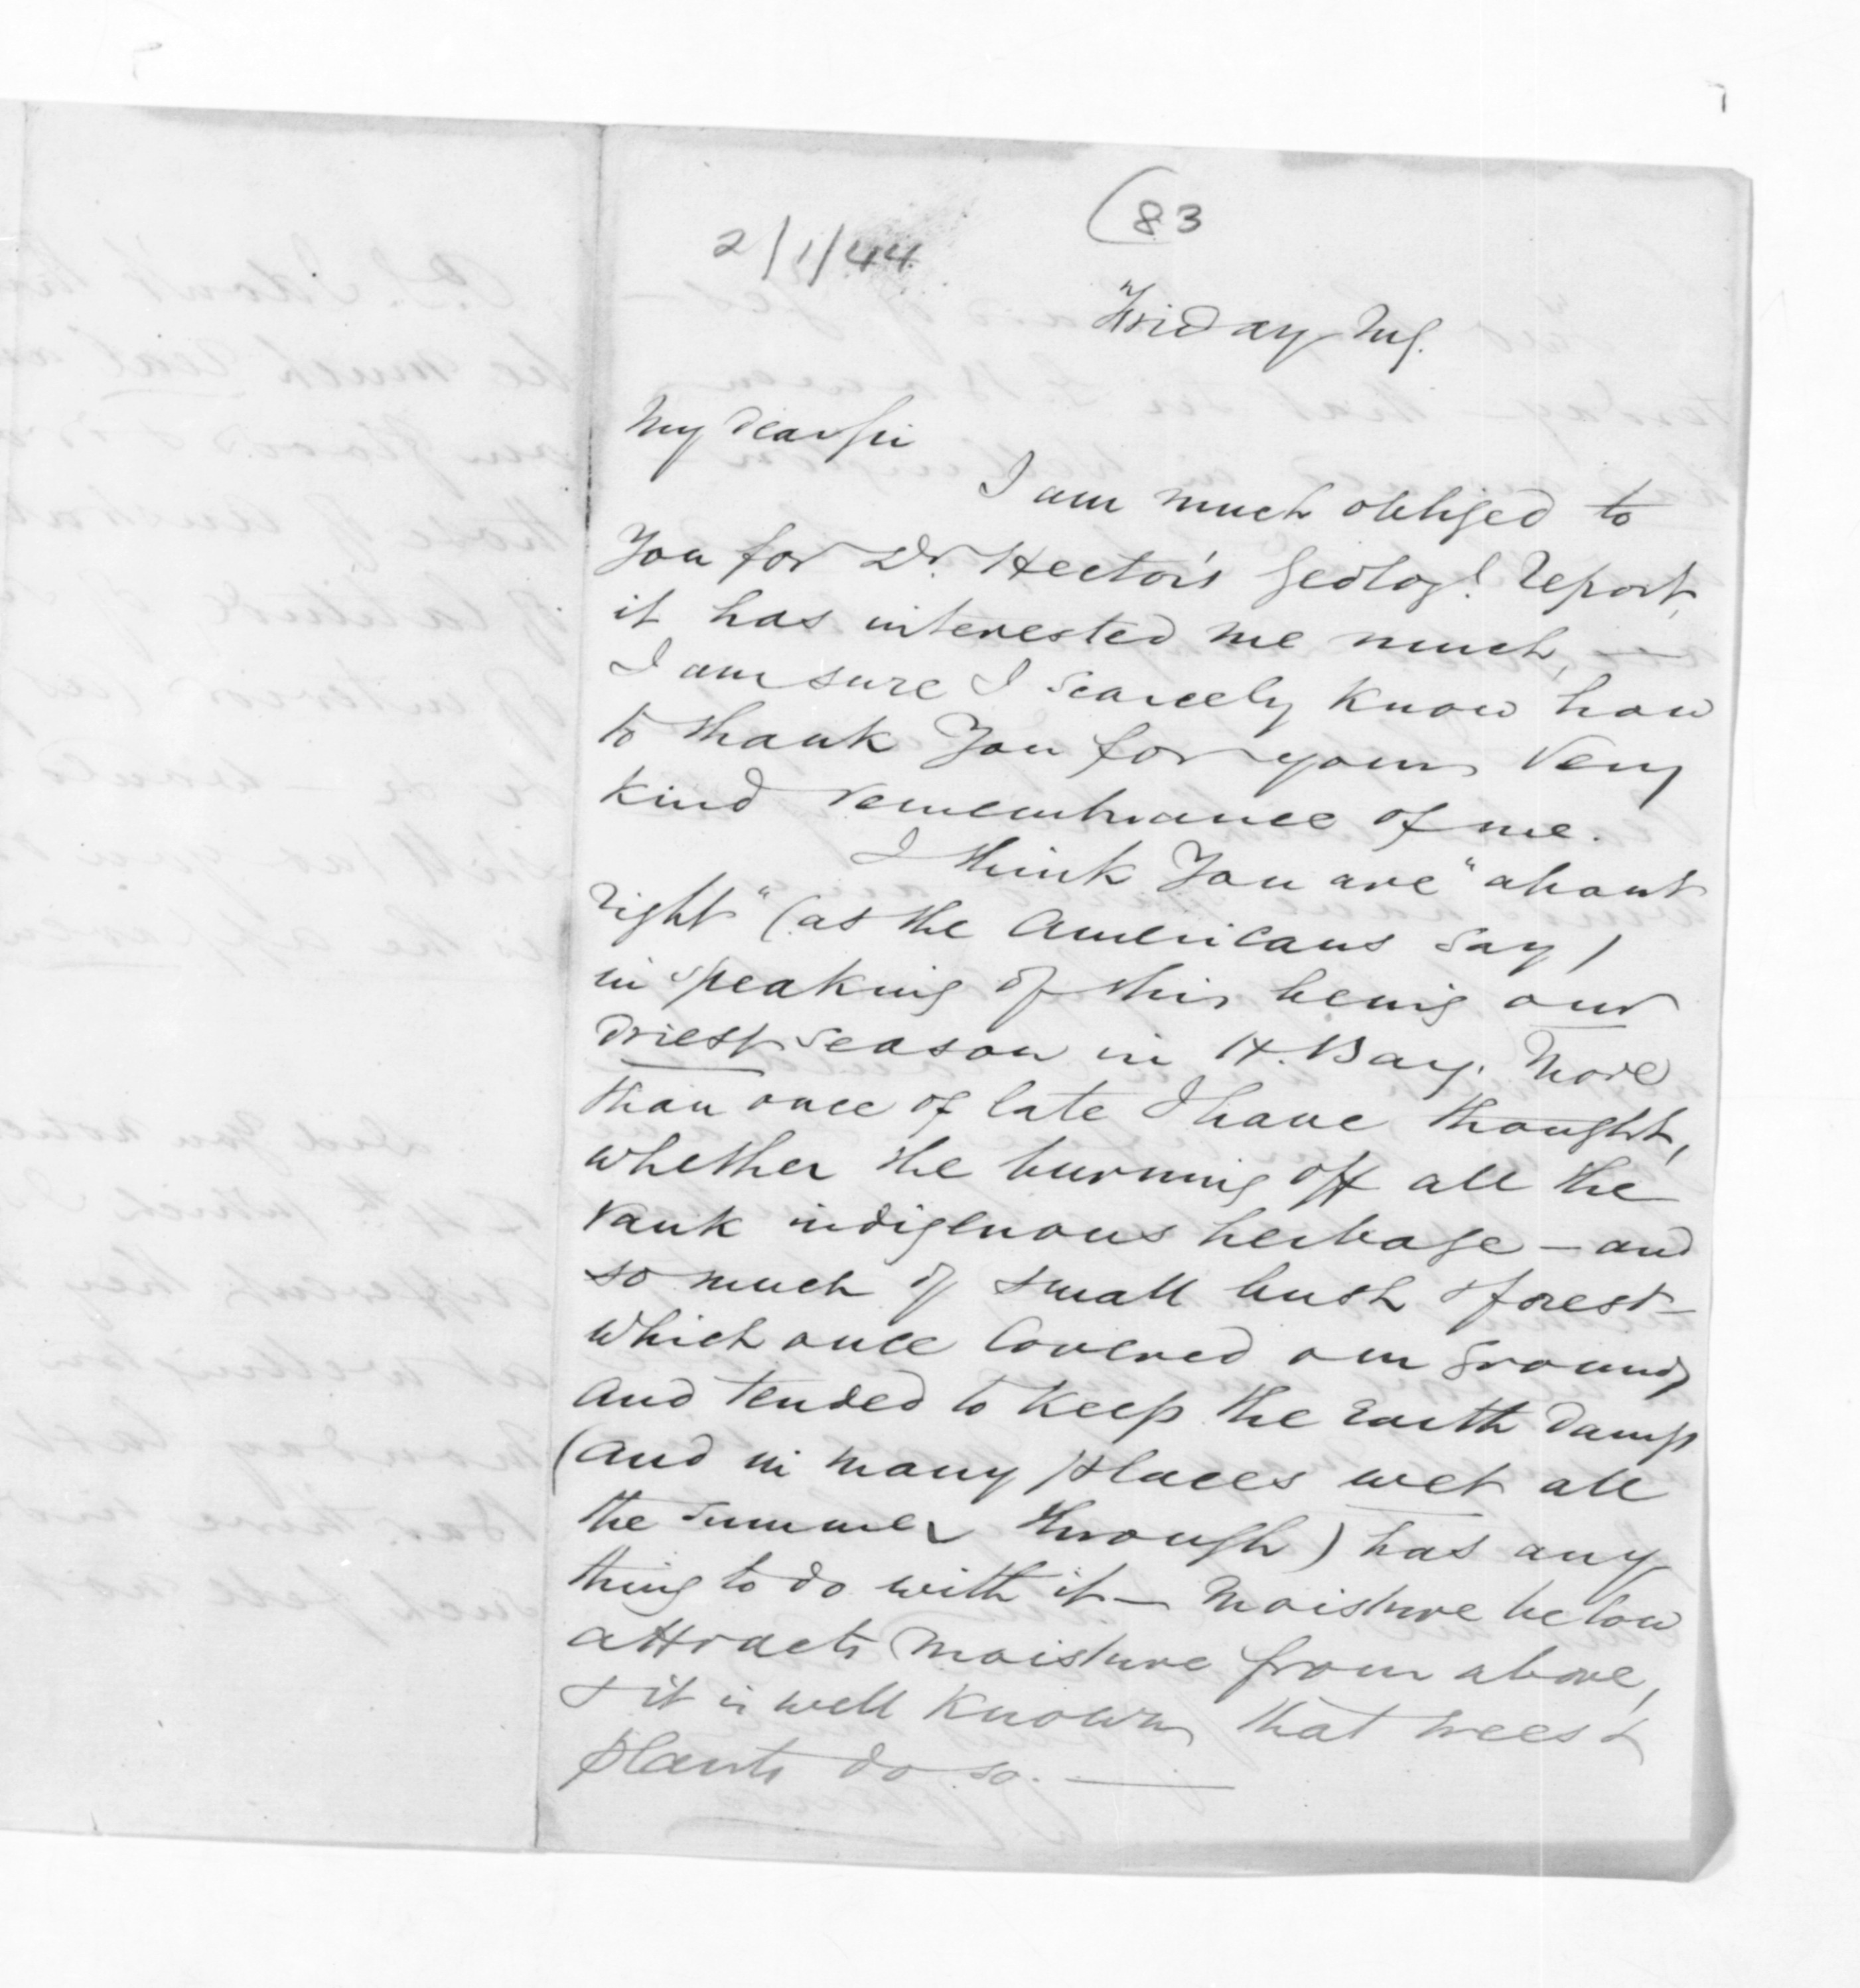 (83
2/1/44
Friday Mg.
My dear Sir
I am much obliged to
You for Dr. Hector's Geolog!. Report,
it has interested me much, —
I am sure I scarcely know how
to thank You for your very
kind remembrance of me.
I think You are "about
right" (as the Americans say)
in speaking of this being our
driest season in H. Bay. More
than once of late I have thought,
whether the burning off all the
rank indigenous herbage – and
so much of small bush & forest –
which once covered our ground,
and tended to keep the Earth damp
(and in many places wet all
the summer through) has any
thing to do with it – Moisture below
attracts moisture from above,
& it is well known that trees &
plants do so. —